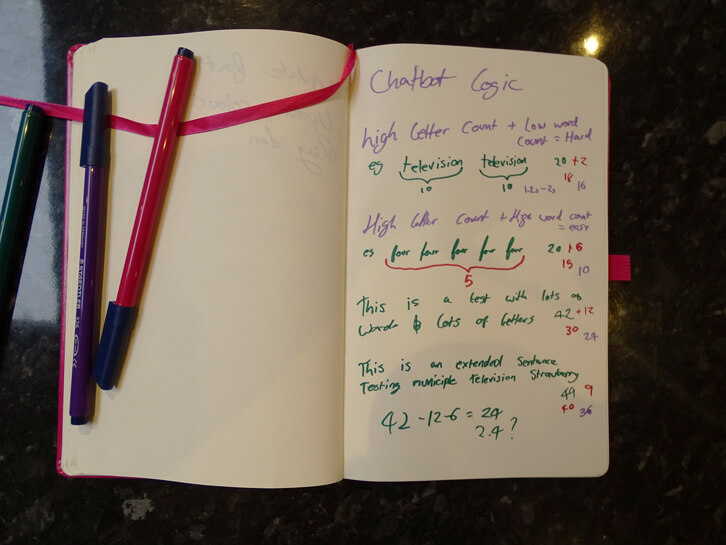 Chatbot Logic
High Letter Count + Low word
Count = Hard
eg television television 20 +2
10 10 18 16
High Letter Count + High word count
= easy
es four four four four four 20 +6
5 15 10
This is a test with lots of
words & Lots of Letters 42 +12
30 24
This is an extended Sentence
Testing municiple Television Strawberry
49 9
40 36
42 -12-6 = 24
2.4?